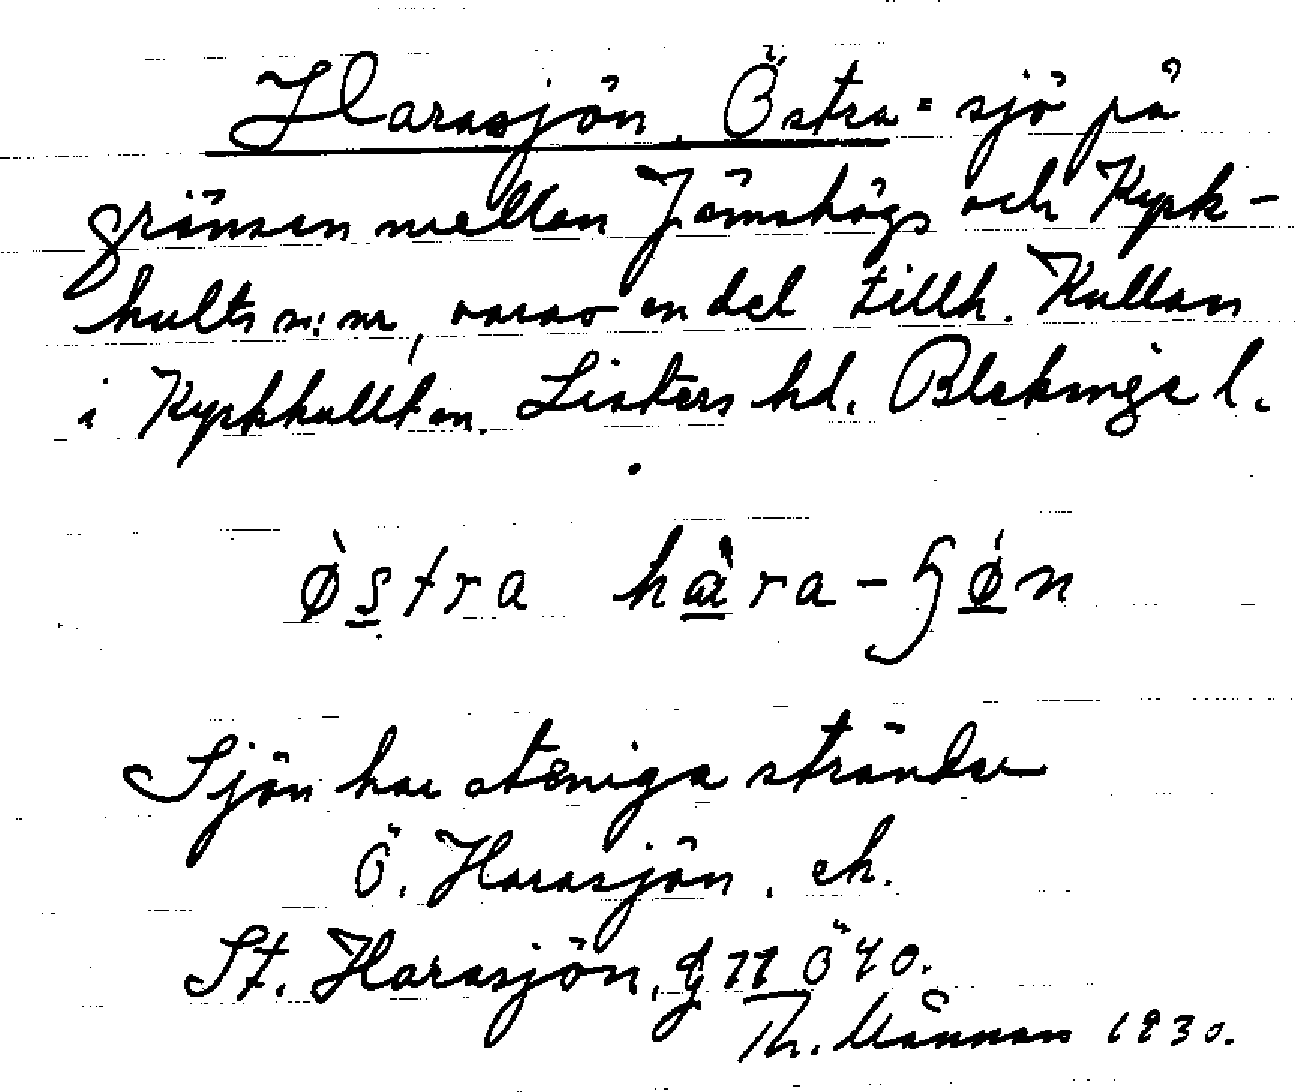 Harasjön, Östra = sjö på
gränsen mellan Jämshögs och Kyrk-
hults snr, varav en del tillh. Kullan
i Kyrkhult sn. Listers hd. Blekinge l.
östra hara-sjön
Sjön har steniga stränder
Ö. Harasjön. ek.
St. Harasjön, GTT Ö 40.
Th. Månnan 1930.